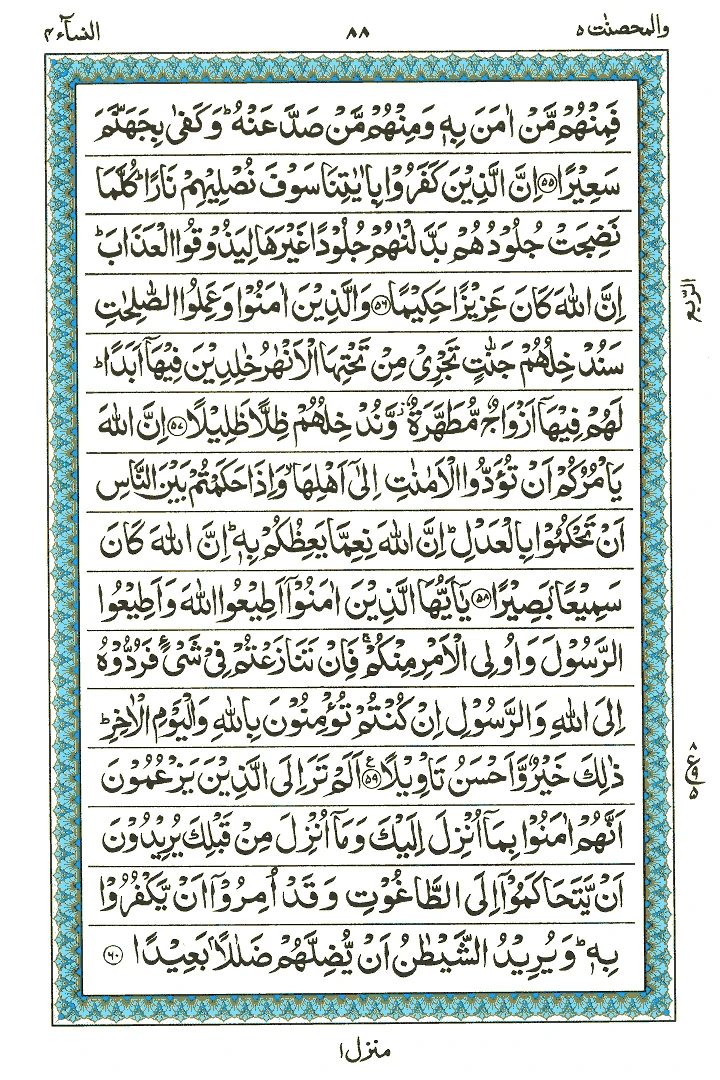 والمحصنٰت ٥ ٨٨ النسآء ٤
فَمِنْهُمْ مَّنْ اٰمَنَ بِهٖ وَمِنْهُمْ مَّنْ صَدَّ عَنْهُ ؕ وَكَفٰى بِجَهَنَّمَ
سَعِيْرًا ﴿۵۵﴾ اِنَّ الَّذِيْنَ كَفَرُوْا بِاٰيٰتِنَا سَوْفَ نُصْلِيْهِمْ نَارًا ؕ كُلَّمَا
نَضِجَتْ جُلُوْدُهُمْ بَدَّلْنٰهُمْ جُلُوْدًا غَيْرَهَا لِيَذُوْقُوا الْعَذَابَ ؕ
اِنَّ اللّٰهَ كَانَ عَزِيْزًا حَكِيْمًا ﴿۵۶﴾ وَالَّذِيْنَ اٰمَنُوْا وَعَمِلُوا الصّٰلِحٰتِ
سَنُدْخِلُهُمْ جَنّٰتٍ تَجْرِيْ مِنْ تَحْتِهَا الْاَنْهٰرُ خٰلِدِيْنَ فِيْهَاۤ اَبَدًا ؕ
لَهُمْ فِيْهَاۤ اَزْوَاجٌ مُّطَهَّرَةٌ ۫ وَّنُدْخِلُهُمْ ظِلًّا ظَلِيْلًا ﴿۵۷﴾ اِنَّ اللّٰهَ
يَاْمُرُكُمْ اَنْ تُؤَدُّوا الْاَمٰنٰتِ اِلٰۤى اَهْلِهَا ۙ وَاِذَا حَكَمْتُمْ بَيْنَ النَّاسِ
اَنْ تَحْكُمُوْا بِالْعَدْلِ ؕ اِنَّ اللّٰهَ نِعِمَّا يَعِظُكُمْ بِهٖ ؕ اِنَّ اللّٰهَ كَانَ
سَمِيْعًۢا بَصِيْرًا ﴿۵۸﴾ يٰۤاَيُّهَا الَّذِيْنَ اٰمَنُوْۤا اَطِيْعُوا اللّٰهَ وَاَطِيْعُوا
الرَّسُوْلَ وَاُولِى الْاَمْرِ مِنْكُمْ ۚ فَاِنْ تَنَازَعْتُمْ فِيْ شَيْءٍ فَرُدُّوْهُ
اِلَى اللّٰهِ وَالرَّسُوْلِ اِنْ كُنْتُمْ تُؤْمِنُوْنَ بِاللّٰهِ وَالْيَوْمِ الْاٰخِرِ ؕ
ذٰلِكَ خَيْرٌ وَّاَحْسَنُ تَاْوِيْلًا ﴿۵۹﴾ اَلَمْ تَرَ اِلَى الَّذِيْنَ يَزْعُمُوْنَ
اَنَّهُمْ اٰمَنُوْا بِمَاۤ اُنْزِلَ اِلَيْكَ وَمَاۤ اُنْزِلَ مِنْ قَبْلِكَ يُرِيْدُوْنَ
اَنْ يَّتَحَاكَمُوْۤا اِلَى الطَّاغُوْتِ وَقَدْ اُمِرُوْۤا اَنْ يَّكْفُرُوْا
بِهٖ ؕ وَيُرِيْدُ الشَّيْطٰنُ اَنْ يُّضِلَّهُمْ ضَلٰلًاۢ بَعِيْدًا ﴿۶۰﴾
الرّبع
ع ٨ ٩ ٥
منزل ١